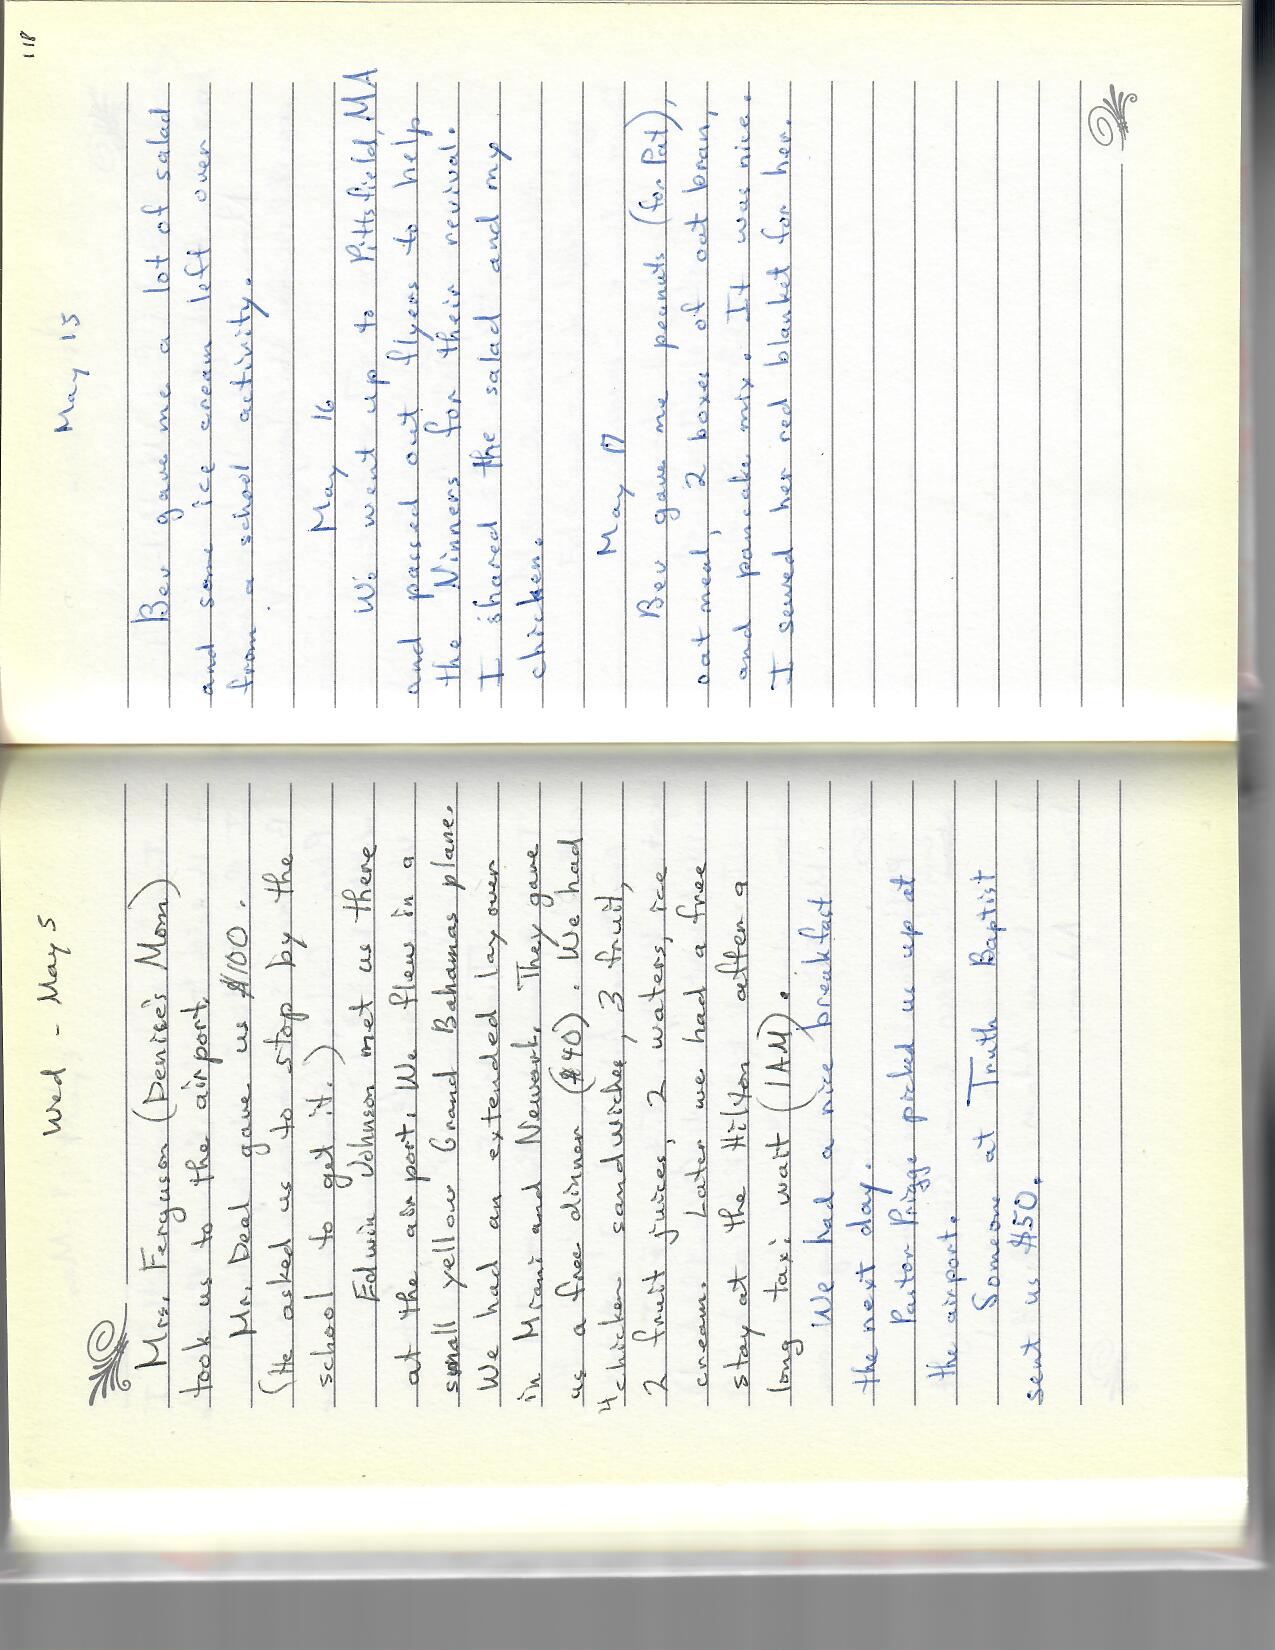 Wed - May 5
Mrs. Ferguson (Denise's Mom)
took us to the airport.
Mr. Deal gave us $100.
(He asked us to stop by the
school to get it.)
Edwin Johnson met us there
at the airport. We flew in a
small yellow Grand Bahamas plane.
We had an extended lay over
in Miami and Newark. They gave
us a free dinner ($40). We had
4 chicken sandwiches, 3 fruit,
2 fruit juices, 2 waters, ice
cream. Later we had a free
stay at the Hilton after a
long taxi wait (1AM).
We had a nice breakfast
the next day.
Pastor Prigge picked us up at
the airport.
Someone at Truth Baptist
sent us $50.
118
May 15
Bev gave me a lot of salad
and some ice cream left over
from a school activity.
May 16
We went up to Pittsfield, MA
and passed out flyers to help
the Ninners for their revival.
I shared the salad and my
chicken.
May 17
Bev gave me peanuts (for Pat),
oat meal, 2 boxes of oat bran,
and pancake mix. It was nice.
I sewed her red blanket for her.